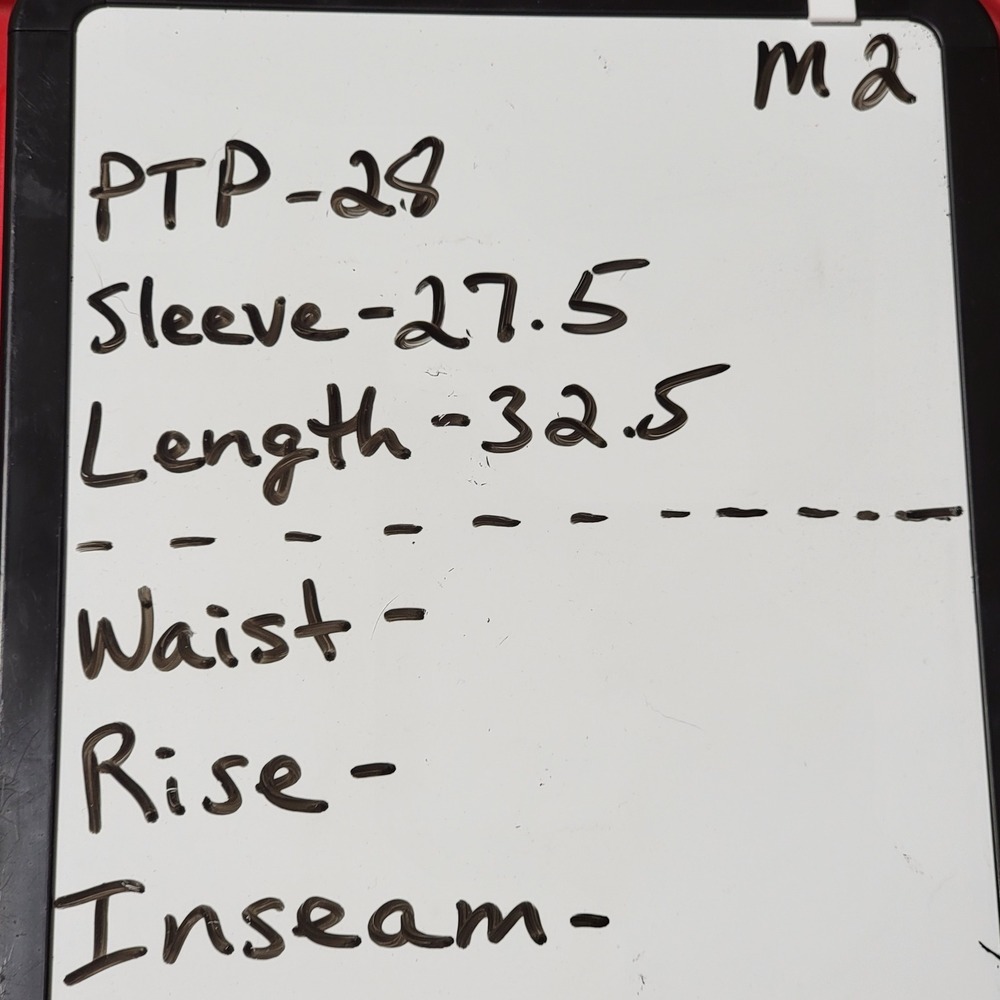 M2
PTP-28
Sleeve-27.5
Length-32.5
- - - - - - - - - - -
Waist-
Rise-
Inseam-